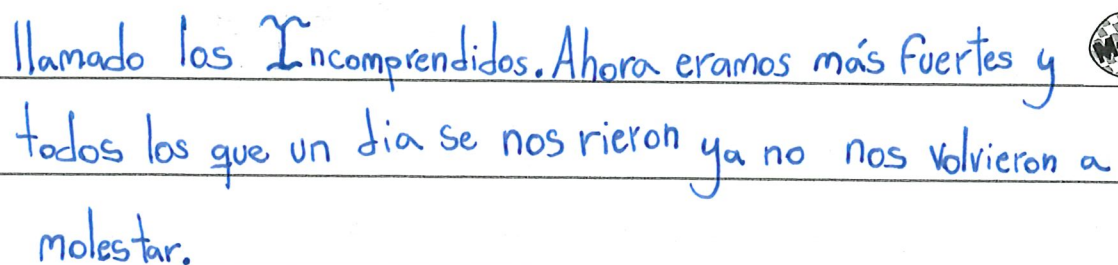 llamado los Incomprendidos. Ahora eramos más fuertes y
todos los que un dia se nos rieron ya no nos volvieron a
molestar.